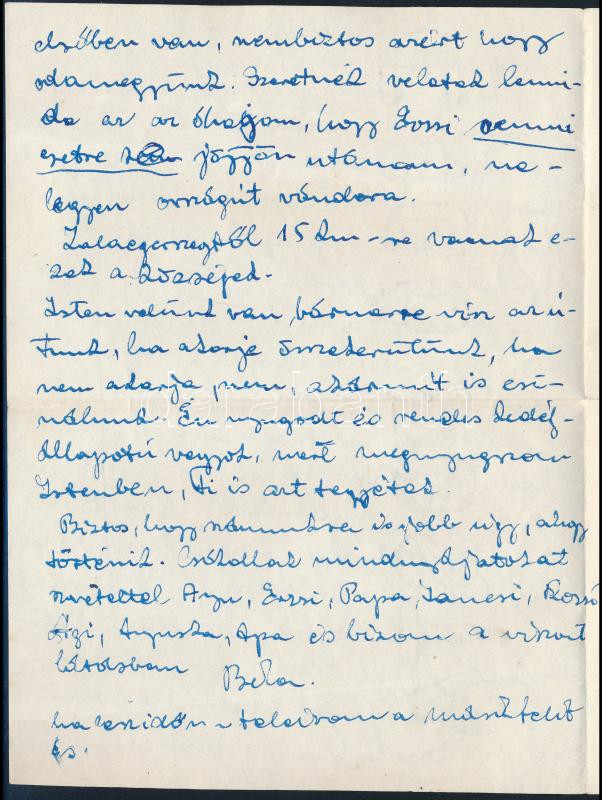 elzőben van, nembiztos azért hogy
odamegyünk. Szeretnék veletek lenni
de az az óhajom, hogy Zsozsi semmi
esetre jöjjön utánam, ne
legyen országút vándora.
Zalaegerszegtől 15 km-re vannak e-
zek a községek.
Isten velünk van, bármerre visz az ú-
tunk, ha akarja összekerülünk, ha
nem akarja, nem, akármit is csi-
nálunk. Én nyugodt és rendes kedély-
állapotú vagyok, mert megnyugszom
Istenben, ti is azt tegyétek.
Biztos, hogy számunkra is jobb úgy, ahogy
történik. Csókollak mindnyájatokat
szeretettel Anyu, Erzsi, Papa, Jancsi,
Ági, Anyuska, Apa és bízom a viszont
látásban
Béla.
ha eszidőm teleírom a másikfelit
is.